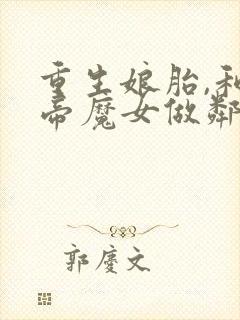 重生娘胎,和
帝魔女做鄰
郭慶文